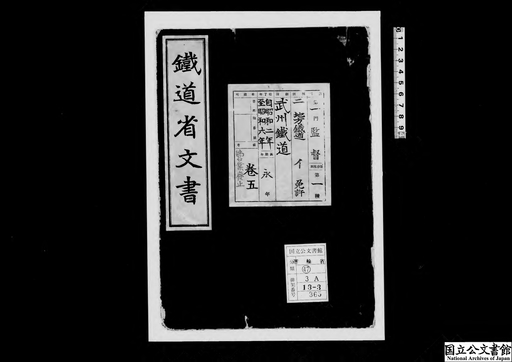 鐵道省文書
門 監督
第一種
二、地方鐵道 イ、免許
武州鐵道
自昭和二年
至昭和六年
永年
卷五
国立公文書館
分類
⑰
3A
13-3
363
国立公文書館
National Archives of Japan
1 2 3 4 5 6 7 8 9